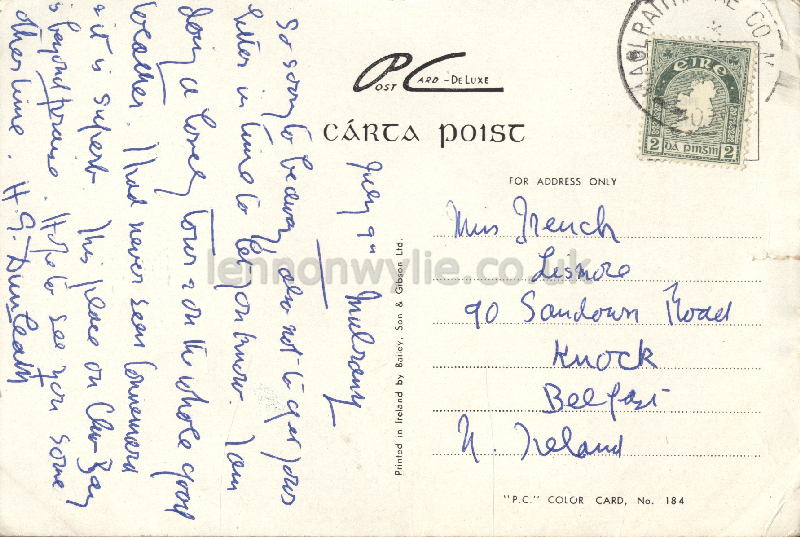 July 9th Mulrany
So sorry to be away also not to get your
letter in time to let you know. I am
doing a lovely tour & on the whole good
weather. I had never seen Connemara
& it is superb. This place on Clew Bay
is beyond praise. Hope to see you some
other time. H.G. Dunleath
POST CARD - DE LUXE
CÁRTA POIST
FOR ADDRESS ONLY
Miss French
Lismore
90 Sandown Road
Knock
Belfast
N. Ireland
"P.C." COLOR CARD, No. 184
Printed in Ireland by Bailey, Son & Gibson Ltd.
éire
2 dá pinġin 2
lennonwylie.co.uk